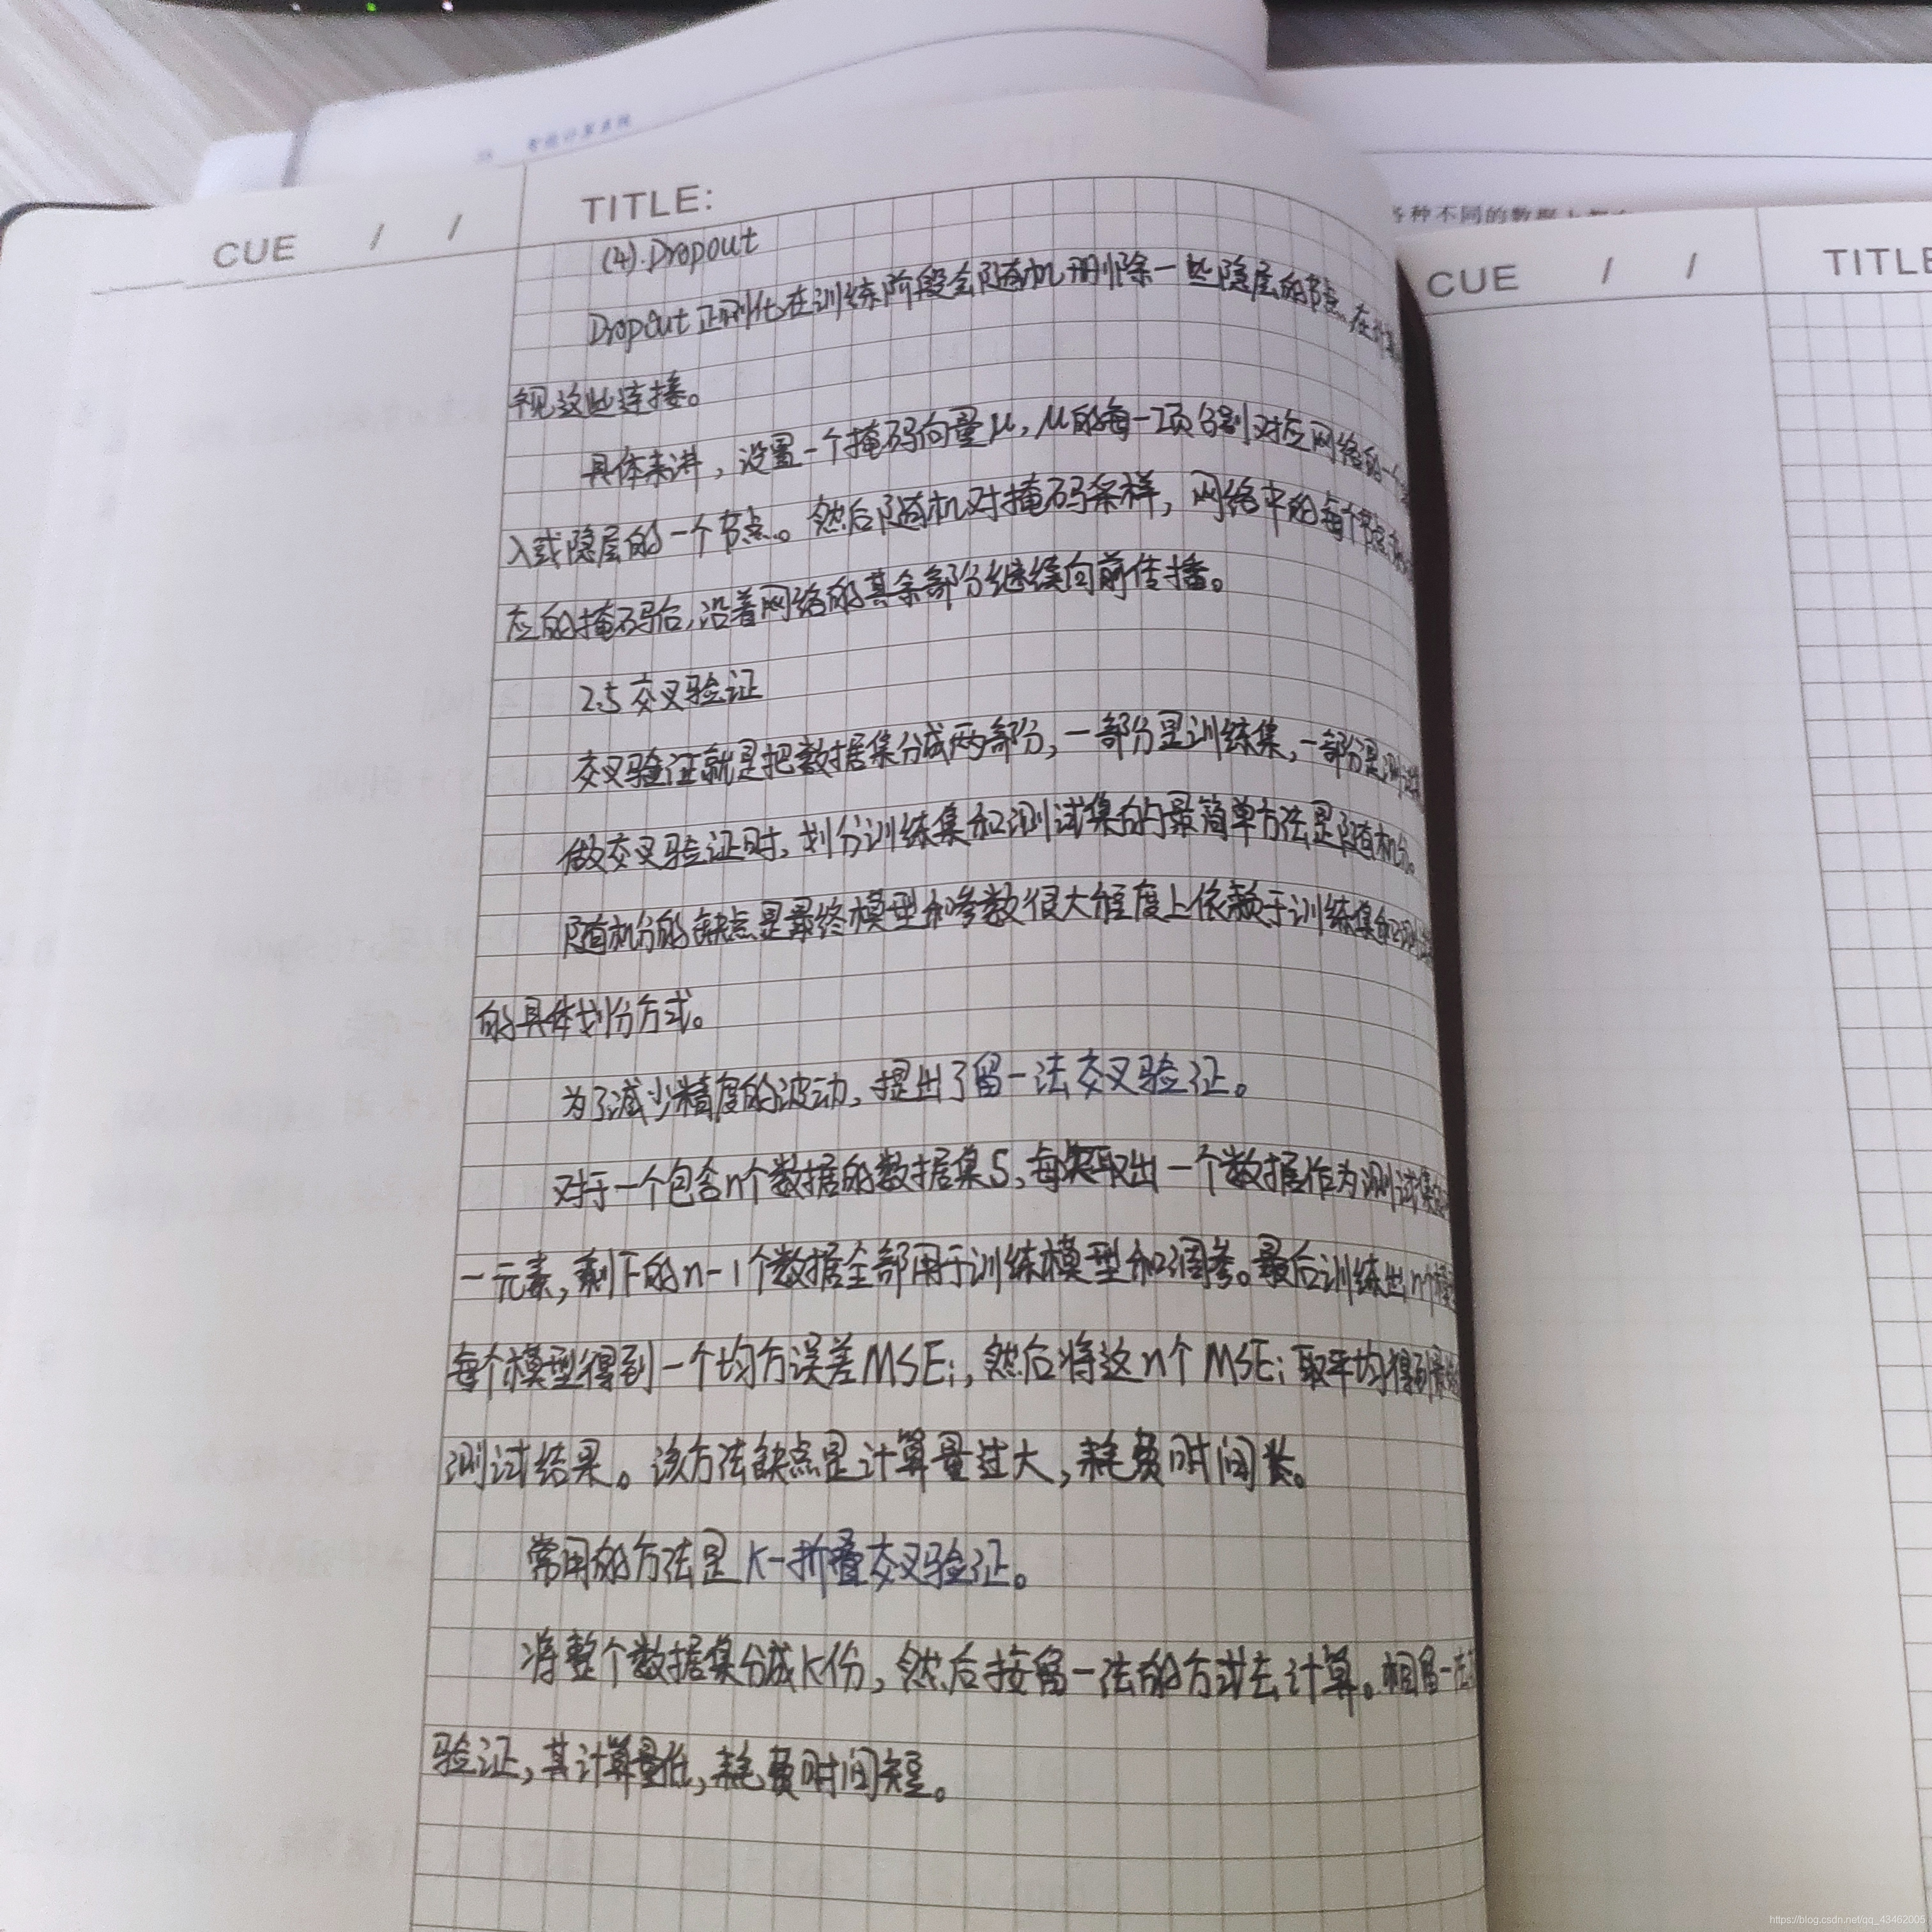 智能计算系统
各种不同的数据
CUE / /
TITLE:
(4).Dropout
Dropout正则化在训练阶段会随机删除一些隐层的节点,在计算
视这些连接。
具体来讲,设置一个掩码向量μ,μ的每一项分别对应网络的一个
入或隐层的一个节点。然后随机对掩码采样,网络中的每个节点
应的掩码后,沿着网络的其余部分继续向前传播。
2.5 交叉验证
交叉验证就是把数据集分成两部分,一部分是训练集,一部分是测试
做交叉验证时,划分训练集和测试集的最简单方法是随机分。
随机分的缺点是最终模型和参数很大程度上依赖于训练集和测试
的具体划分方式。
为了减少精度的波动,提出了留一法交叉验证。
对于一个包含n个数据的数据集S,每次取出一个数据作为测试集
一元素,剩下的n-1个数据全部用于训练模型和调参。最后训练出n个模
每个模型得到一个均方误差MSEi,然后将这n个MSEi取平均得到最
测试结果。该方法缺点是计算量过大,耗费时间长。
常用的方法是K-折叠交叉验证。
将整个数据集分成K份,然后按留一法的方式去计算。相留一法
验证,其计算量低,耗费时间短。
CUE / /
TITLE
https://blog.csdn.net/qq_43462005